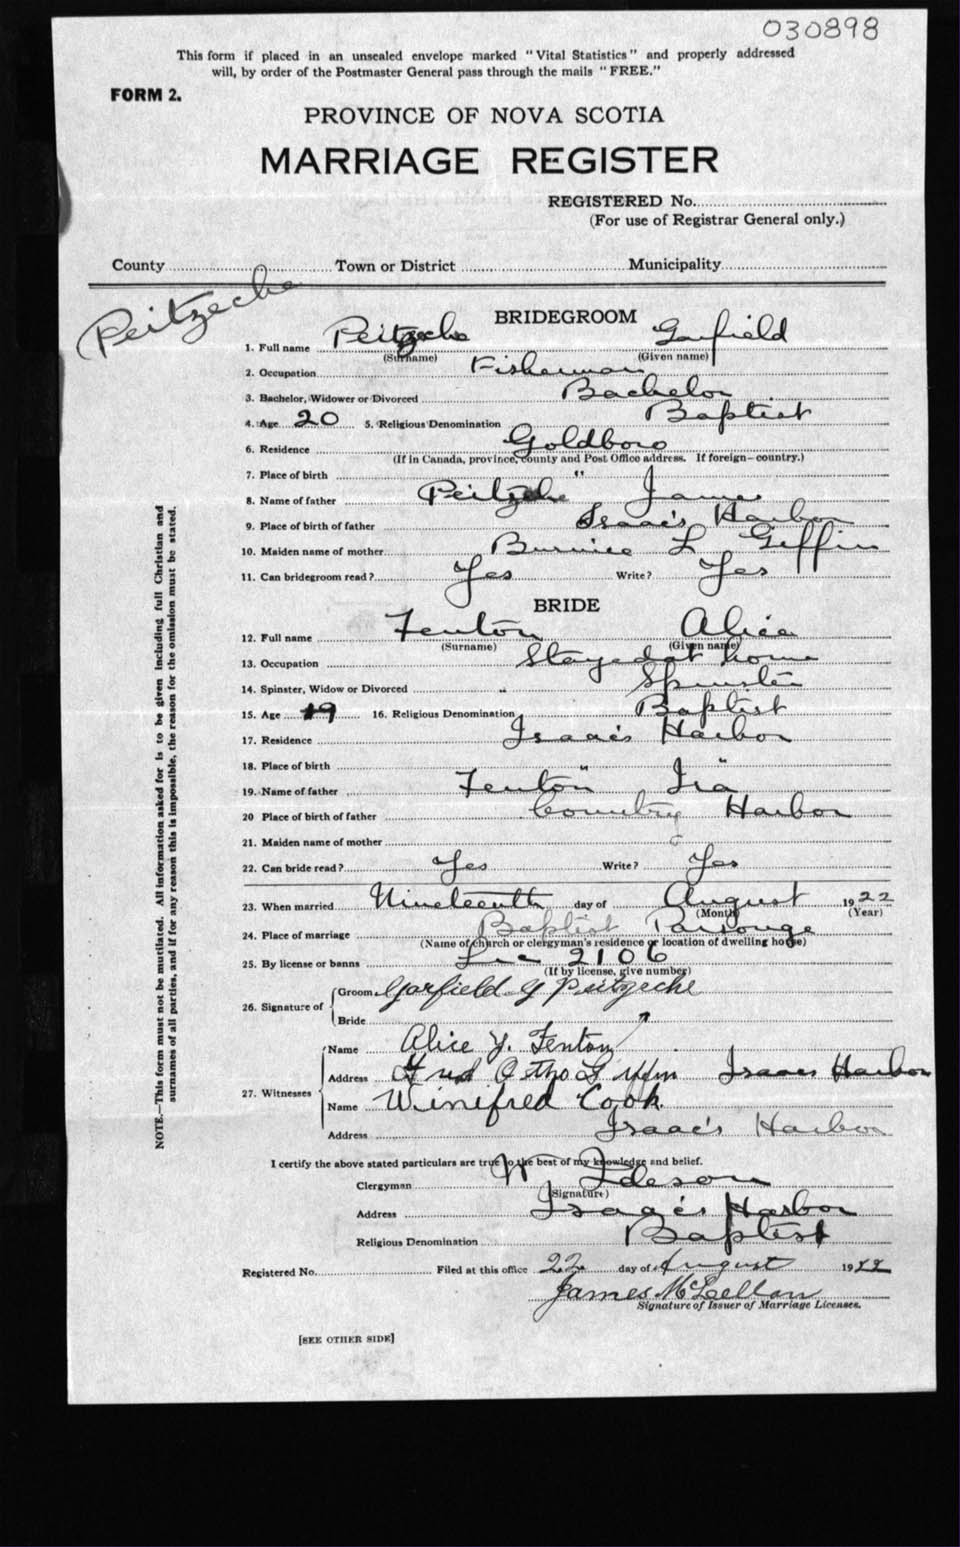 030898
This form if placed in an unsealed envelope marked "Vital Statistics" and properly addressed
will, by order of the Postmaster General pass through the mails "FREE."
FORM 2.
PROVINCE OF NOVA SCOTIA
MARRIAGE REGISTER
REGISTERED No.
(For use of Registrar General only.)
County Town or District Municipality
Peitzeche
BRIDEGROOM
1. Full name Peitzeche Garfield
(Surname) (Given name)
2. Occupation Fisherman
3. Bachelor, Widower or Divorced Bachelor
4. Age 20 5. Religious Denomination Baptist
6. Residence Goldboro
(If in Canada, province, county and Post Office address. If foreign—country.)
7. Place of birth "
8. Name of father Peitzche James
9. Place of birth of father Isaac's Harbor
10. Maiden name of mother Burnice L Giffin
11. Can bridegroom read? Yes Write? Yes
BRIDE
12. Full name Fenton Alice
(Surname) (Given name)
13. Occupation Stayed at home
14. Spinster, Widow or Divorced Spinster
15. Age 19 16. Religious Denomination Baptist
17. Residence Isaac's Harbor
18. Place of birth " "
19. Name of father Fenton Ira
20 Place of birth of father Country Harbor
21. Maiden name of mother
22. Can bride read? Yes Write? Yes
23. When married Nineteenth day of August 1922
(Month) (Year)
24. Place of marriage Baptist Parsonage
(Name of church or clergyman's residence or location of dwelling house)
25. By license or banns Lic 2106
(If by license, give number)
26. Signature of Groom Garfield G Peitzeche
Bride
27. Witnesses Name Alice Y. Fenton
Address Isaacs Harbor
Name Winifred Cook
Address Isaac's Harbor
I certify the above stated particulars are true to the best of my knowledge and belief.
Clergyman W Ideson
(Signature)
Address Isaac's Harbor
Religious Denomination Baptist
Registered No. Filed at this office 22 day of August 1922
James McLellan
Signature of Issuer of Marriage Licenses.
[SEE OTHER SIDE]
NOTE.—This form must not be mutilated. All information asked for is to be given including full Christian and
surnames of all parties, and if for any reason this is impossible, the reason for the omission must be stated.